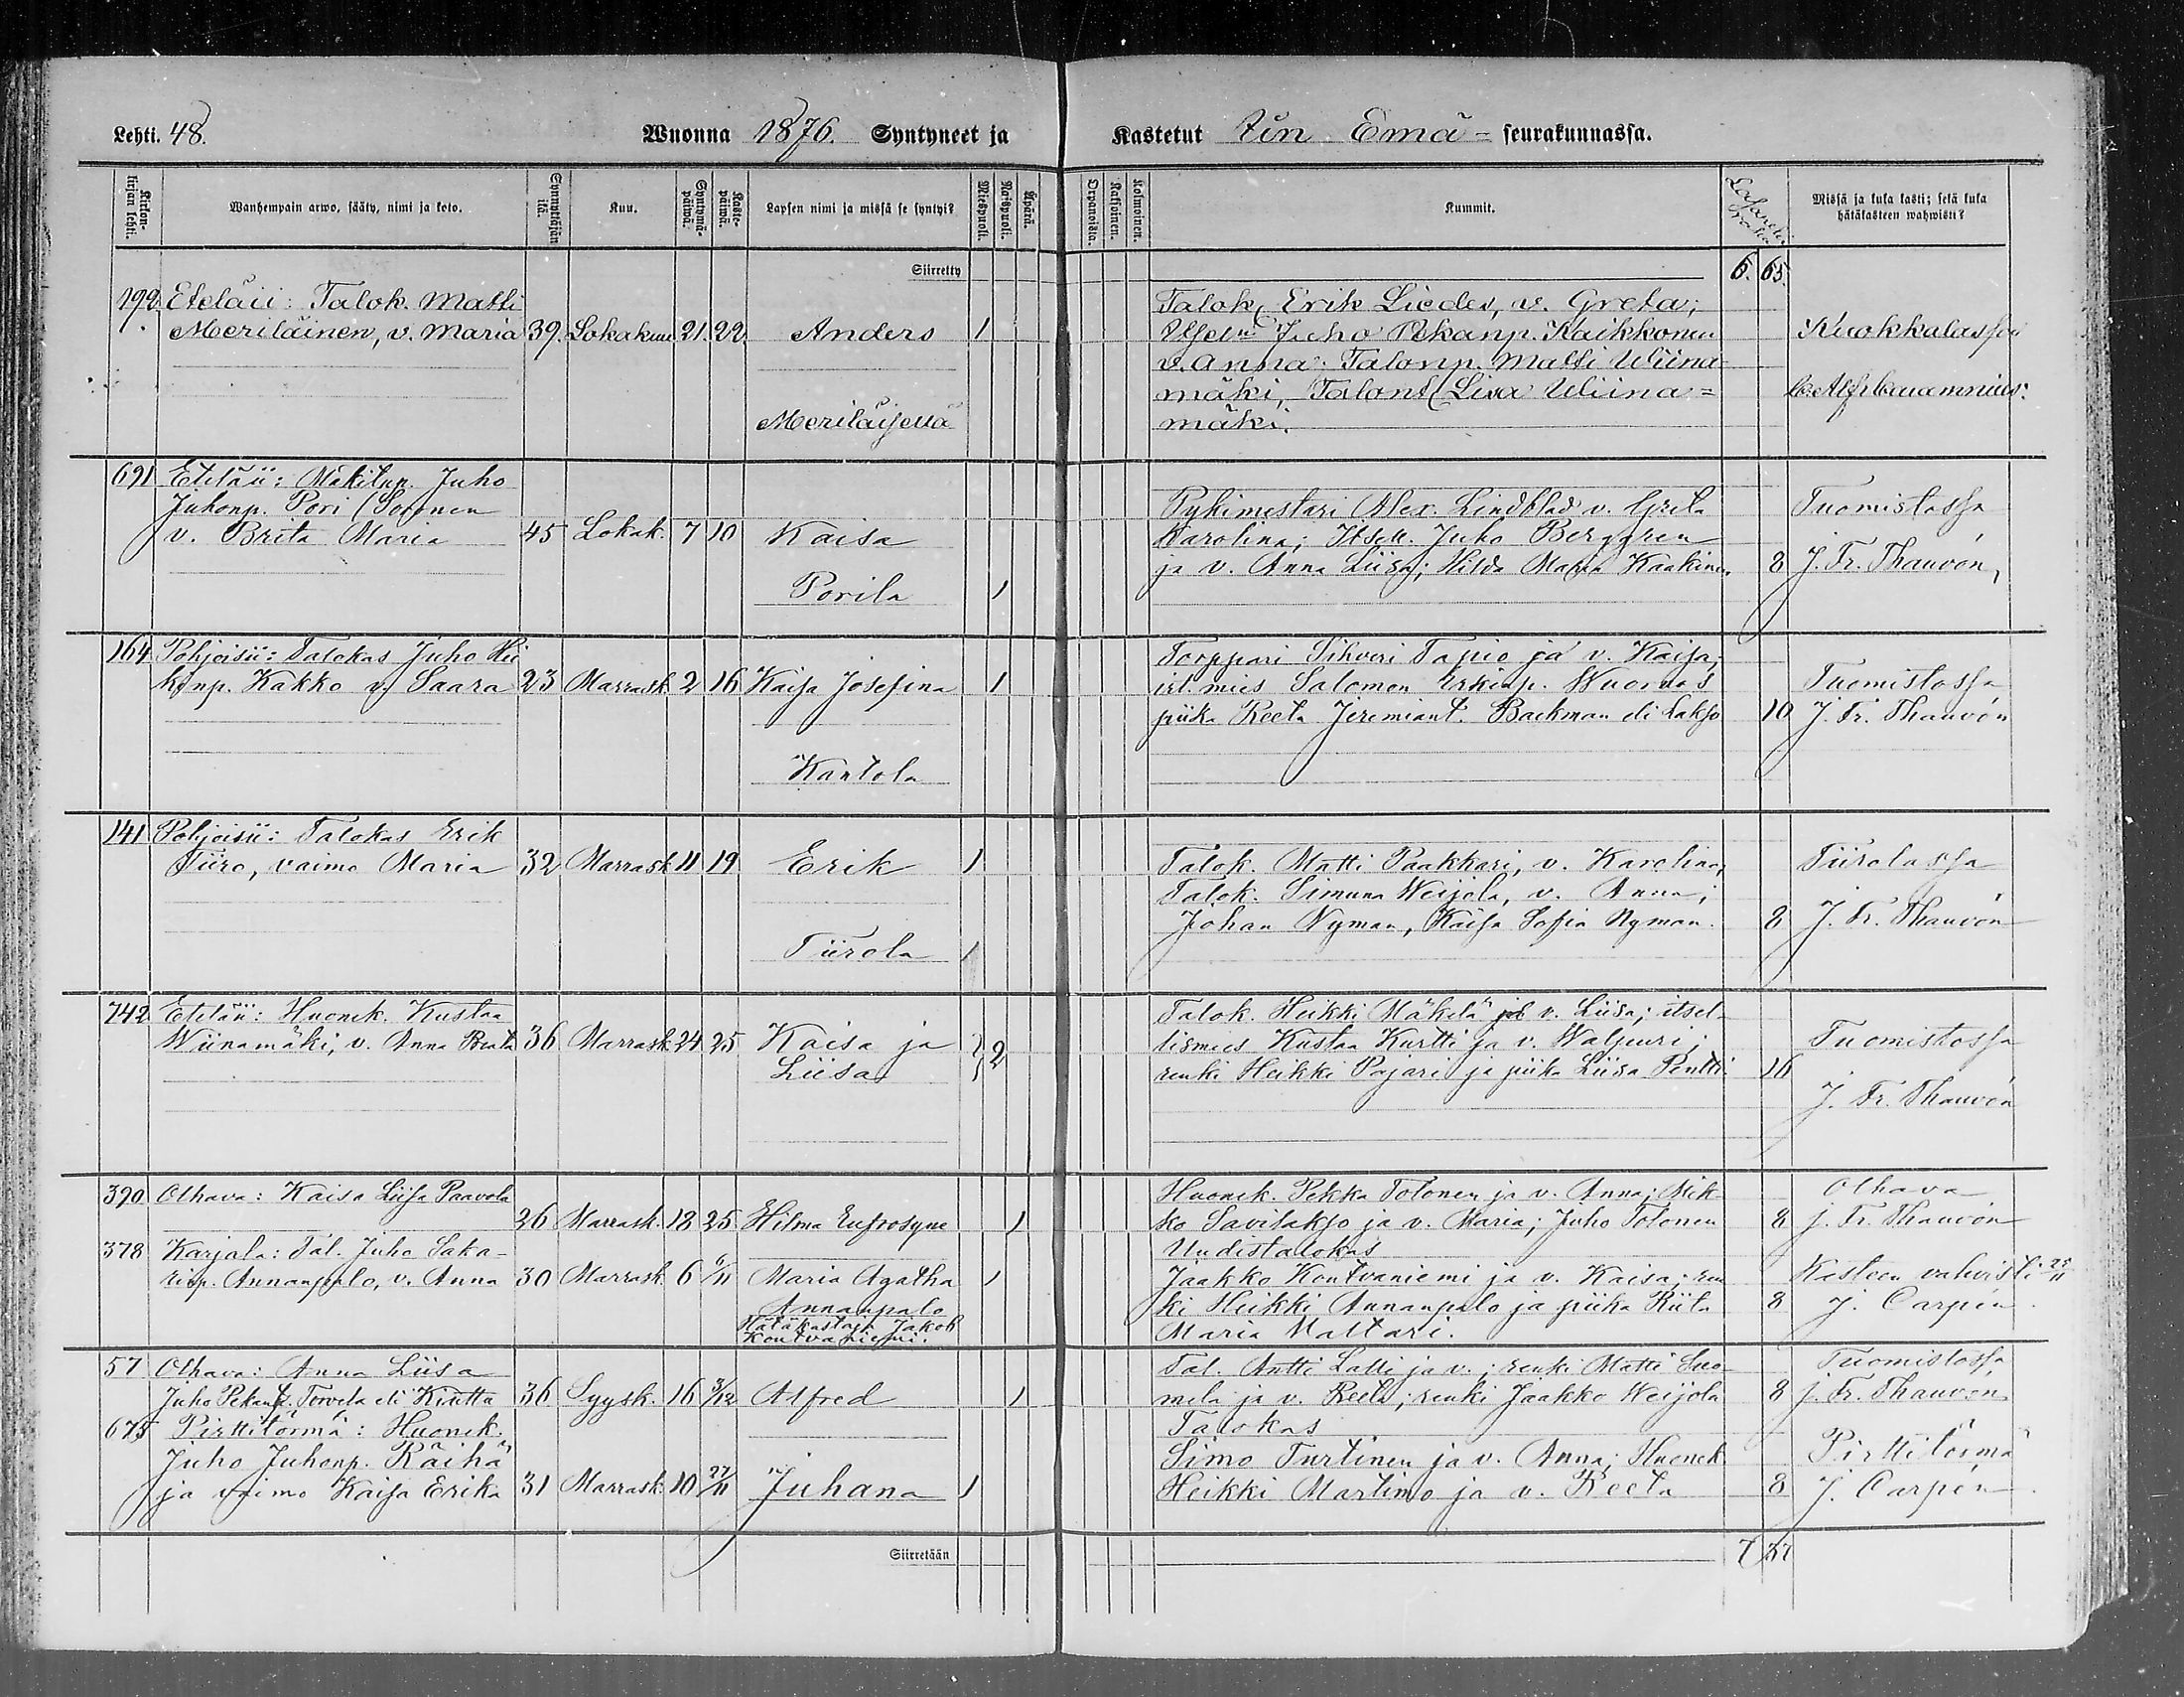 Lehti. 48. Wuonna 1876. Syntyneet ja Kastetut Iin Emä= seurakunnassa.
Kirkonkirjan lehti. Wanhempain arwo, sääty, nimi ja koto. Synnyttäjän ikä. Kuu. Syntymäpäiwä. Kastepäiwä. Lapsen nimi ja missä se syntyi? Miespuoli. Waispuoli. Äpärä. Orpanoista. Kaksoinen. Kolmoinen. Kummit. Missä ja kuka kasti; sekä kuka hätäkasteen wahwisti?
Siirretty 6. 65.
199. Eteläii: Talok. Matti
Meriläinen, v. Maria 39. Lokakuu 21. 22. Anders 1
Meriläisellä
Talok. Erik Liedes, v. Greta;
Juho Pekanp. Kaikkonen
v. Anna. Talonp. Matti Wiina-
mäki, Talont. Lisa Wiina=
mäki.
Kuokkalassa
691 Eteläii: Mäkitup. Juho
Juhonp. Pori (Soronen
v. Brita Maria 45 Lokak. 7 10 Kaisa
Porila 1
Pykimestari Alex. Lindblad v. Greta
Karolina; Itsell. Juho Berggren
ja v. Anna Liisa; Hilda Maria Kaakinen 8
Tuomistossa
J. Fr. Thauvón,
164 Pohjoisii: Talokas Juho Hei
kinp. Kakko v. Saara 23 Marrask. 2 16 Kaisa Josefina 1
Kantola
Torppari Sihveri Tapio ja v. Kaisa;
irt. mies Salomon Erkinp. Wuornos
piika Reeta Jeremiant. Backman eli Lakso 10
Tuomistossa
J. Fr. Thauvón
141 Pohjoisii: Talokas Erik
Tiiro, vaimo Maria 32 Marrask 11 19 Erik 1
Tiirola
Talok. Matti Paakkari, v. Karolina;
Talok. Simuna Weijola, v. Anna;
Johan Nyman, Kaisa Sofia Nyman. 8
Tiirolassa
J. Fr. Thauvón
742 Eteläii: Huonek. Kustaa
Wiinamäki, v. Anna Breita 36 Marrask. 24 25 Kaisa ja 2
Liisa
Talok. Heikki Mäkelä ja v. Liisa; itsel-
lismies Kustaa Kurtti ja v. Walpuri;
renki Heikki Pajari ja piika Liisa Pentti 16
Tuomistossa
J. Fr. Thauvón
390 Olhava: Kaisa Liisa Paavola
26 Marrask. 18 25 Hilma Eufrosyne 1
Huonek. Pekka Tolonen ja v. Anna; Mik-
ko Savilakso ja v. Maria; Juho Tolonen 8
Olhava
J. Fr. Thauvón
378 Karjala: Tal. Juho Saka-
rinp. Annanpalo, v. Anna 30 Marrask. 6 6/11 Maria Agatha 1
Annanpalo
Hätäkastaja Jakob
Kontvaniemi.
Uudistalokas
Jaakko Kontvaniemi ja v. Kaisa; ren
ki Heikki Annanpalo ja piika Riita 8
Maria Maltari.
Kasteen vahvisti 25/11
J. Carpén.
57 Olhava: Anna Liisa
Juho Pekant. Torvela eli Kiutta 36 Syysk. 16 3/12 Alfred 1
Tal. Antti Latti ja v.; renki Matti Suo-
mela ja v. Reeta; renki Jaakko Weijola 8
Tuomistossa
J. Fr. Thauvón
675 Pirttitörmä: Huonek.
Juho Juhonp. Räihä
ja vaimo Kaisa Erika 31 Marrask. 10 27/11 Juhana 1
Talokas
Simo Turtinen ja v. Anna; Huonek
Heikki Martimo ja v. Reeta 8
Pirttitörmä
J. Carpén.
Siirretään 7 57